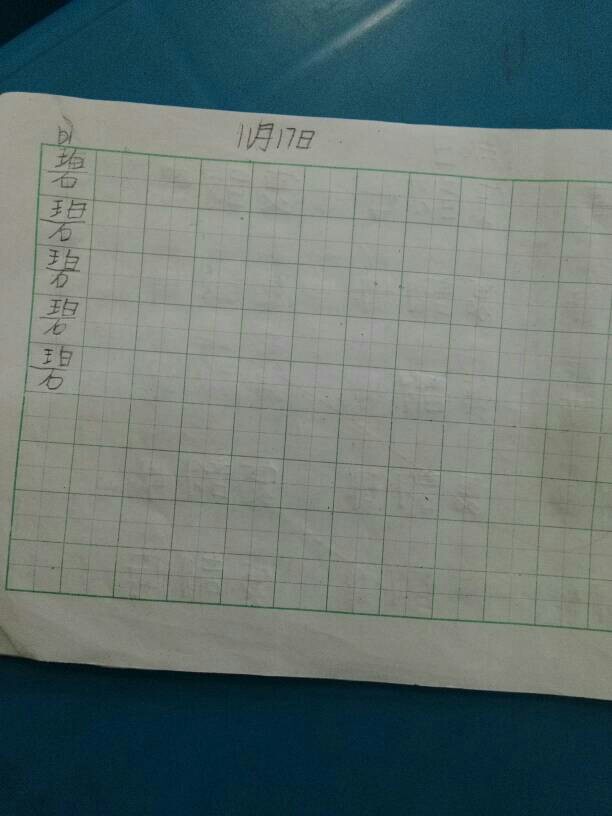 11月17日
bì
碧
碧
碧
碧
碧